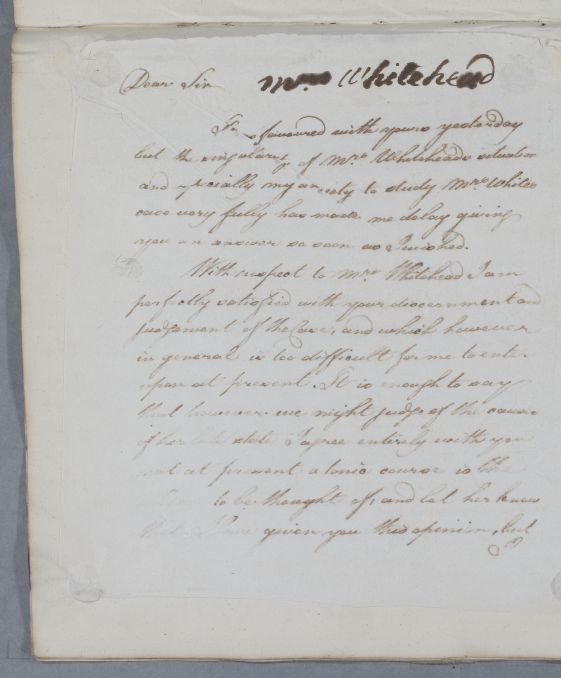 Dear Sir
Mrs Whitehead
favoured with yours yesterday
but the singularity of Mrs. Whiteheads situation
and specially my anxiety to study Mrs White's
case very fully has made me delay giving
you an answer so soon as I wished.
With respect to Mrs. Whitehead I am
perfectly satisfied with your discernment and
judgement of the Case, and which however
in general is too difficult for me to enter
upon at present. It is enough to say
that however we might judge of the cause
of her late state I agree entirely with you
at present a tonic course is the
to be thought of, and let her know
that I have given you this opinion, but